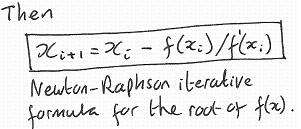 Then
x_{i+1} = x_i - f(x_i)/f'(x_i)
Newton-Raphson iterative
formula for the root of f(x).